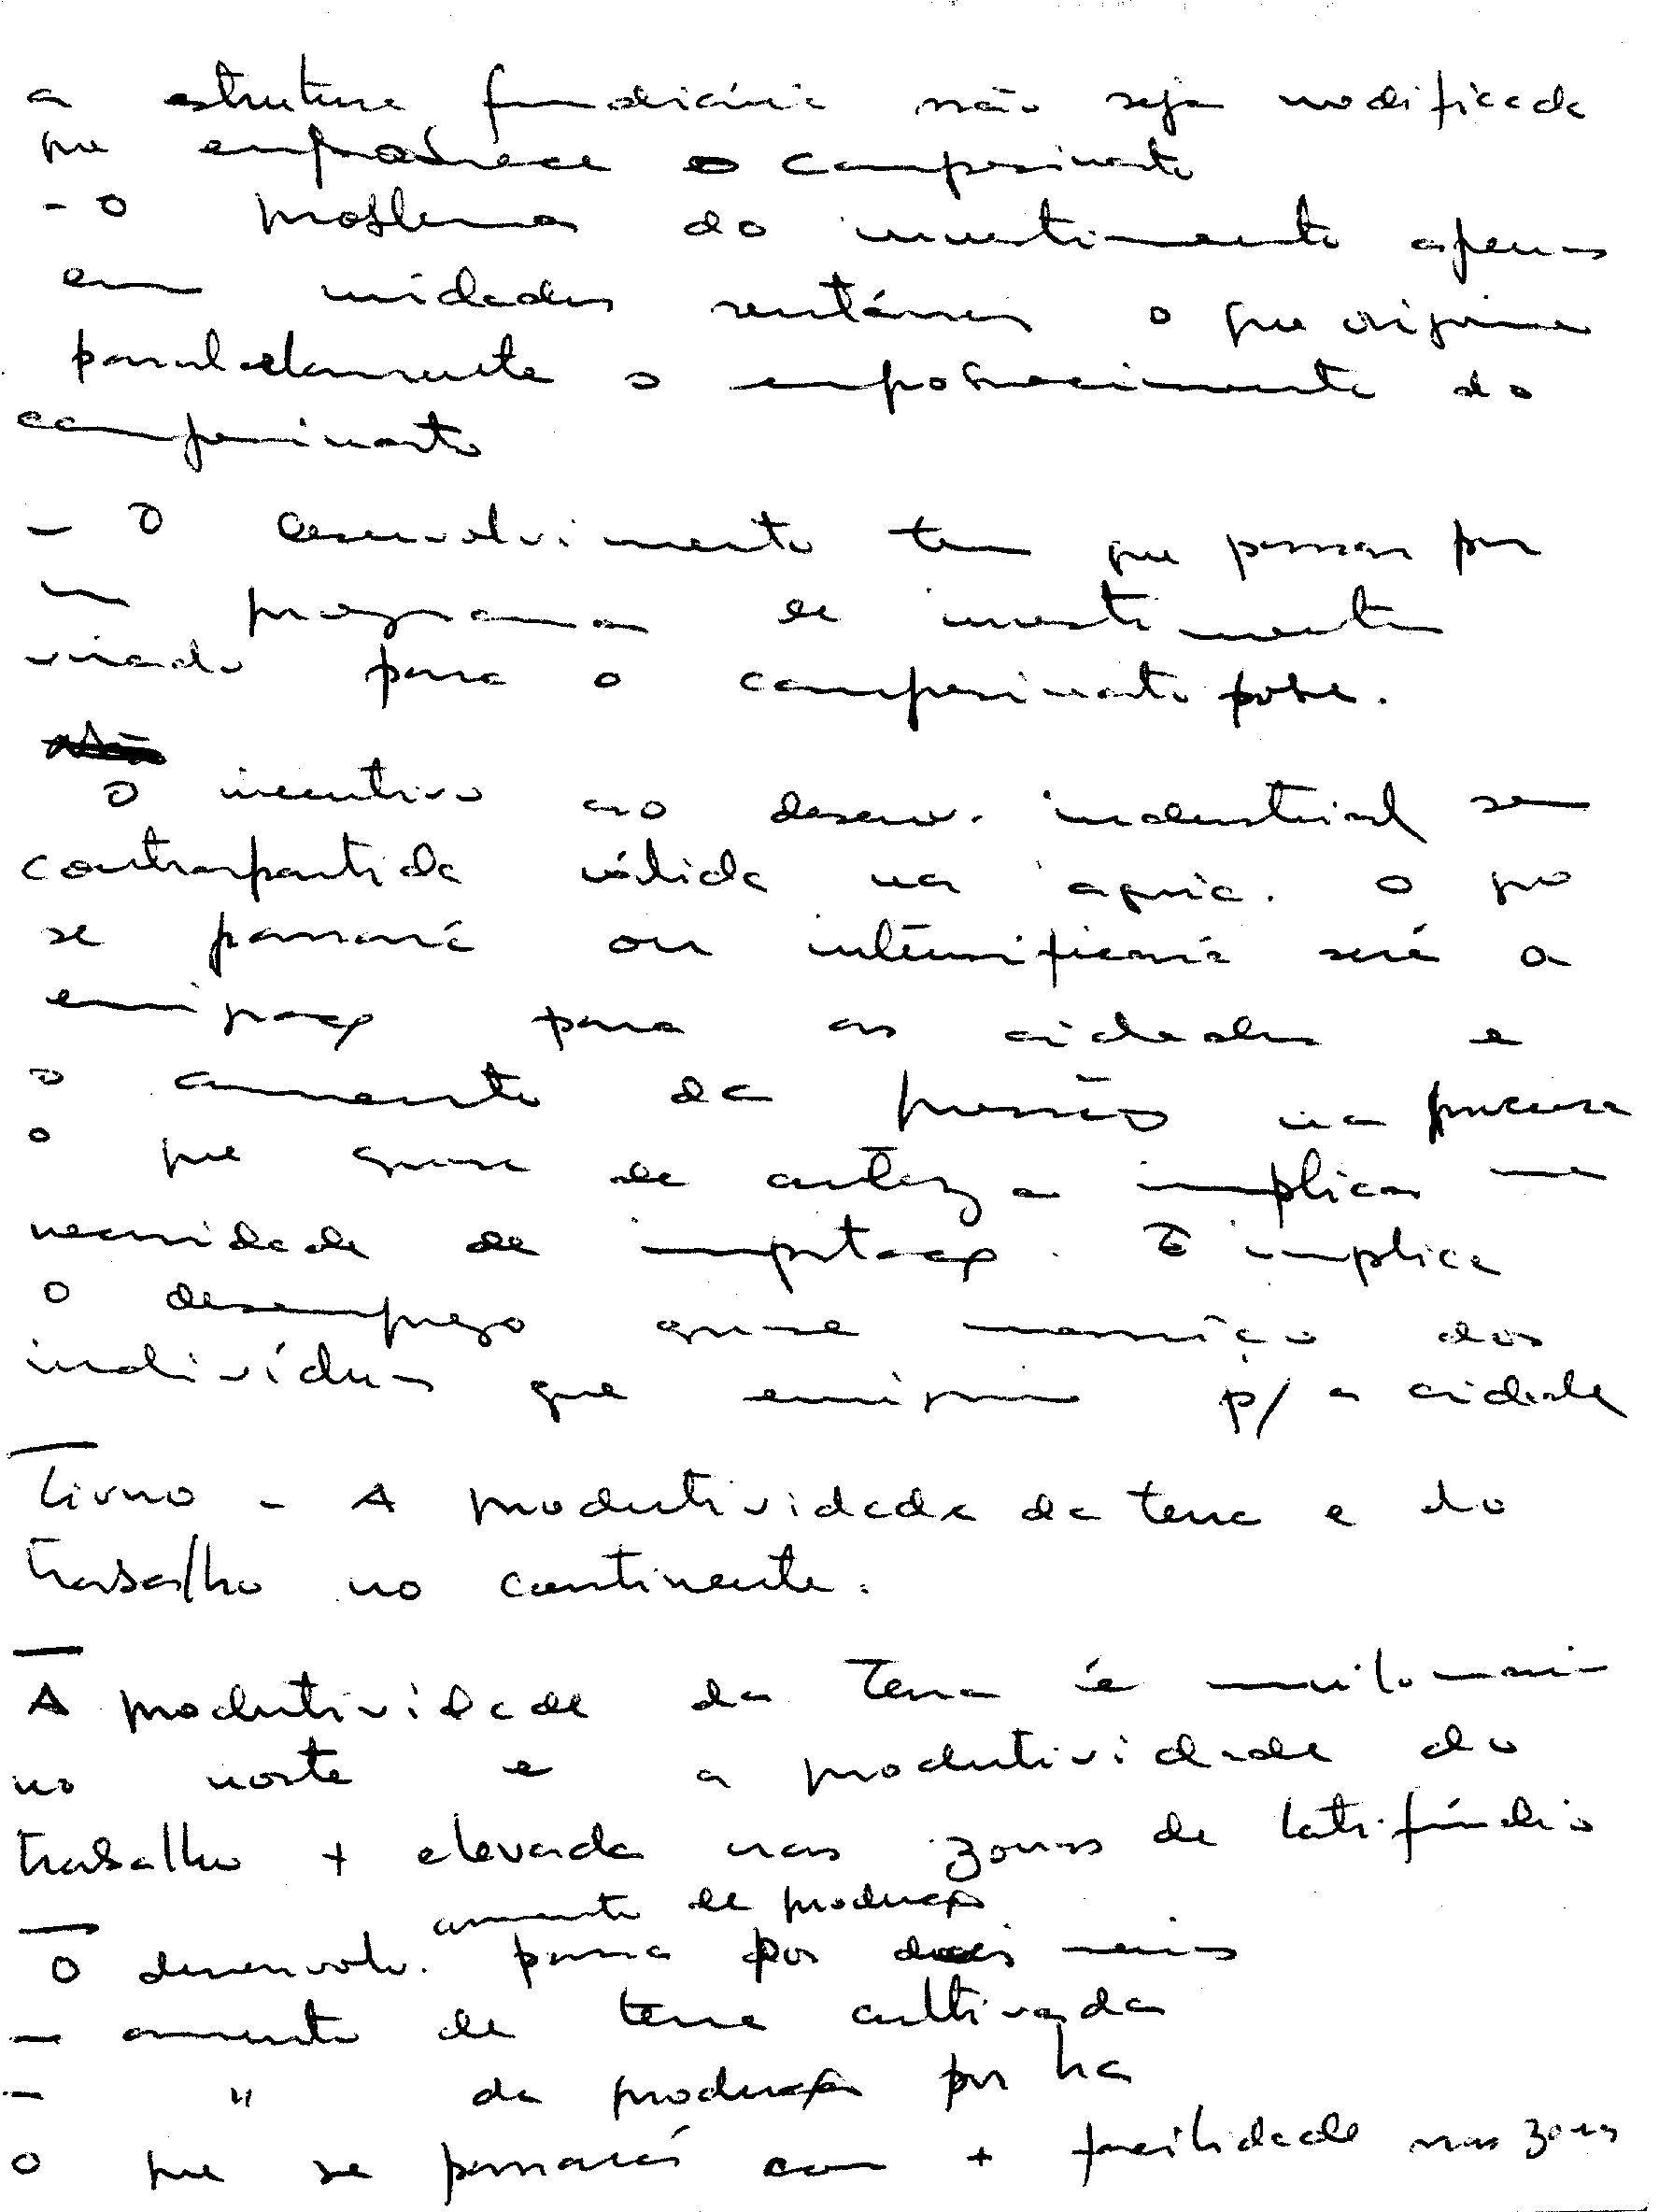 a estrutura fundiária não seja modificada
que empobrece o campesinato
- o problema do investimento apenas
em unidades rentáveis o que origina
paralelamente o empobrecimento do
campesinato
- O desenvolvimento tem que passar por
um programa de investimento
virado para o campesinato pobre.
O incentivo ao desenv. industrial sem
contrapartida válida na agric. o que
se passará ou intensificará será a
emigração para as cidades e
o aumento da pressão na procura
o que quase de certeza implica uma
necessidade de importação. E implica
o desemprego quase maciço dos
indivíduos que emigram p/ a cidade
Livro - A produtividade da terra e do
trabalho no continente.
A produtividade da terra é muito maior
no norte e a produtividade do
trabalho + elevada nas zonas de latifúndio
aumento de produção
O desenvolv. passa por dois meios
- aumento de terra cultivada
- " da produção por ha
o que se passará com + facilidade nas zonas